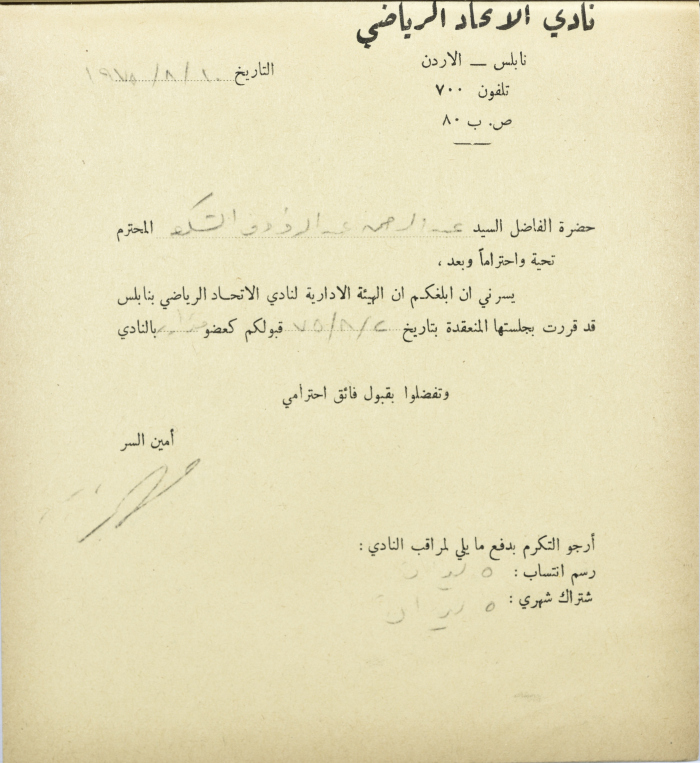 نادي الاتحاد الرياضي
نابلس — الاردن
تلفون ٧٠٠
ص. ب ٨٠
التاريخ ١٠/٨/١٩٧٥
حضرة الفاضل السيد عبد الرحمن عبد الرؤوف المحترم
تحية واحتراماً وبعد ،
يسرني ان ابلغكم ان الهيئة الادارية لنادي الاتحاد الرياضي بنابلس
قد قررت بجلستها المنعقدة بتاريخ ٧٥/٨/٢ قبولكم كعضو بالنادي
وتفضلوا بقبول فائق احترامي
أمين السر
أرجو التكرم بدفع ما يلي لمراقب النادي :
رسم انتساب : ٥
شتراك شهري : ٥